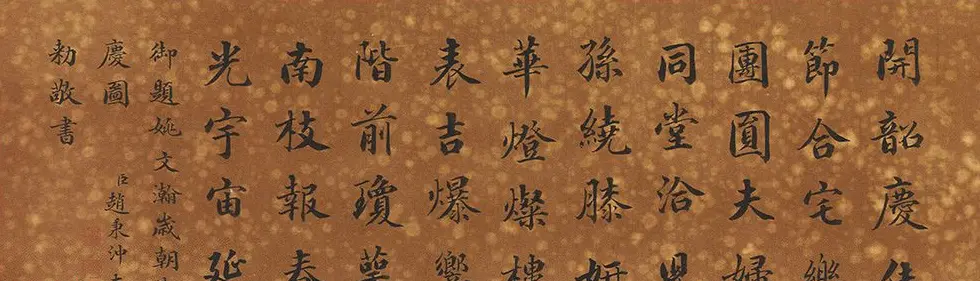 開韶慶佳
節合宅樂
團圓夫婦
同堂洽兒
孫繞膝妍
華燈燦樓
表吉爆響
階前瓊
南枝報春
光宇宙延
御題姚文瀚歲朝
慶圖 臣趙秉沖
勅敬書